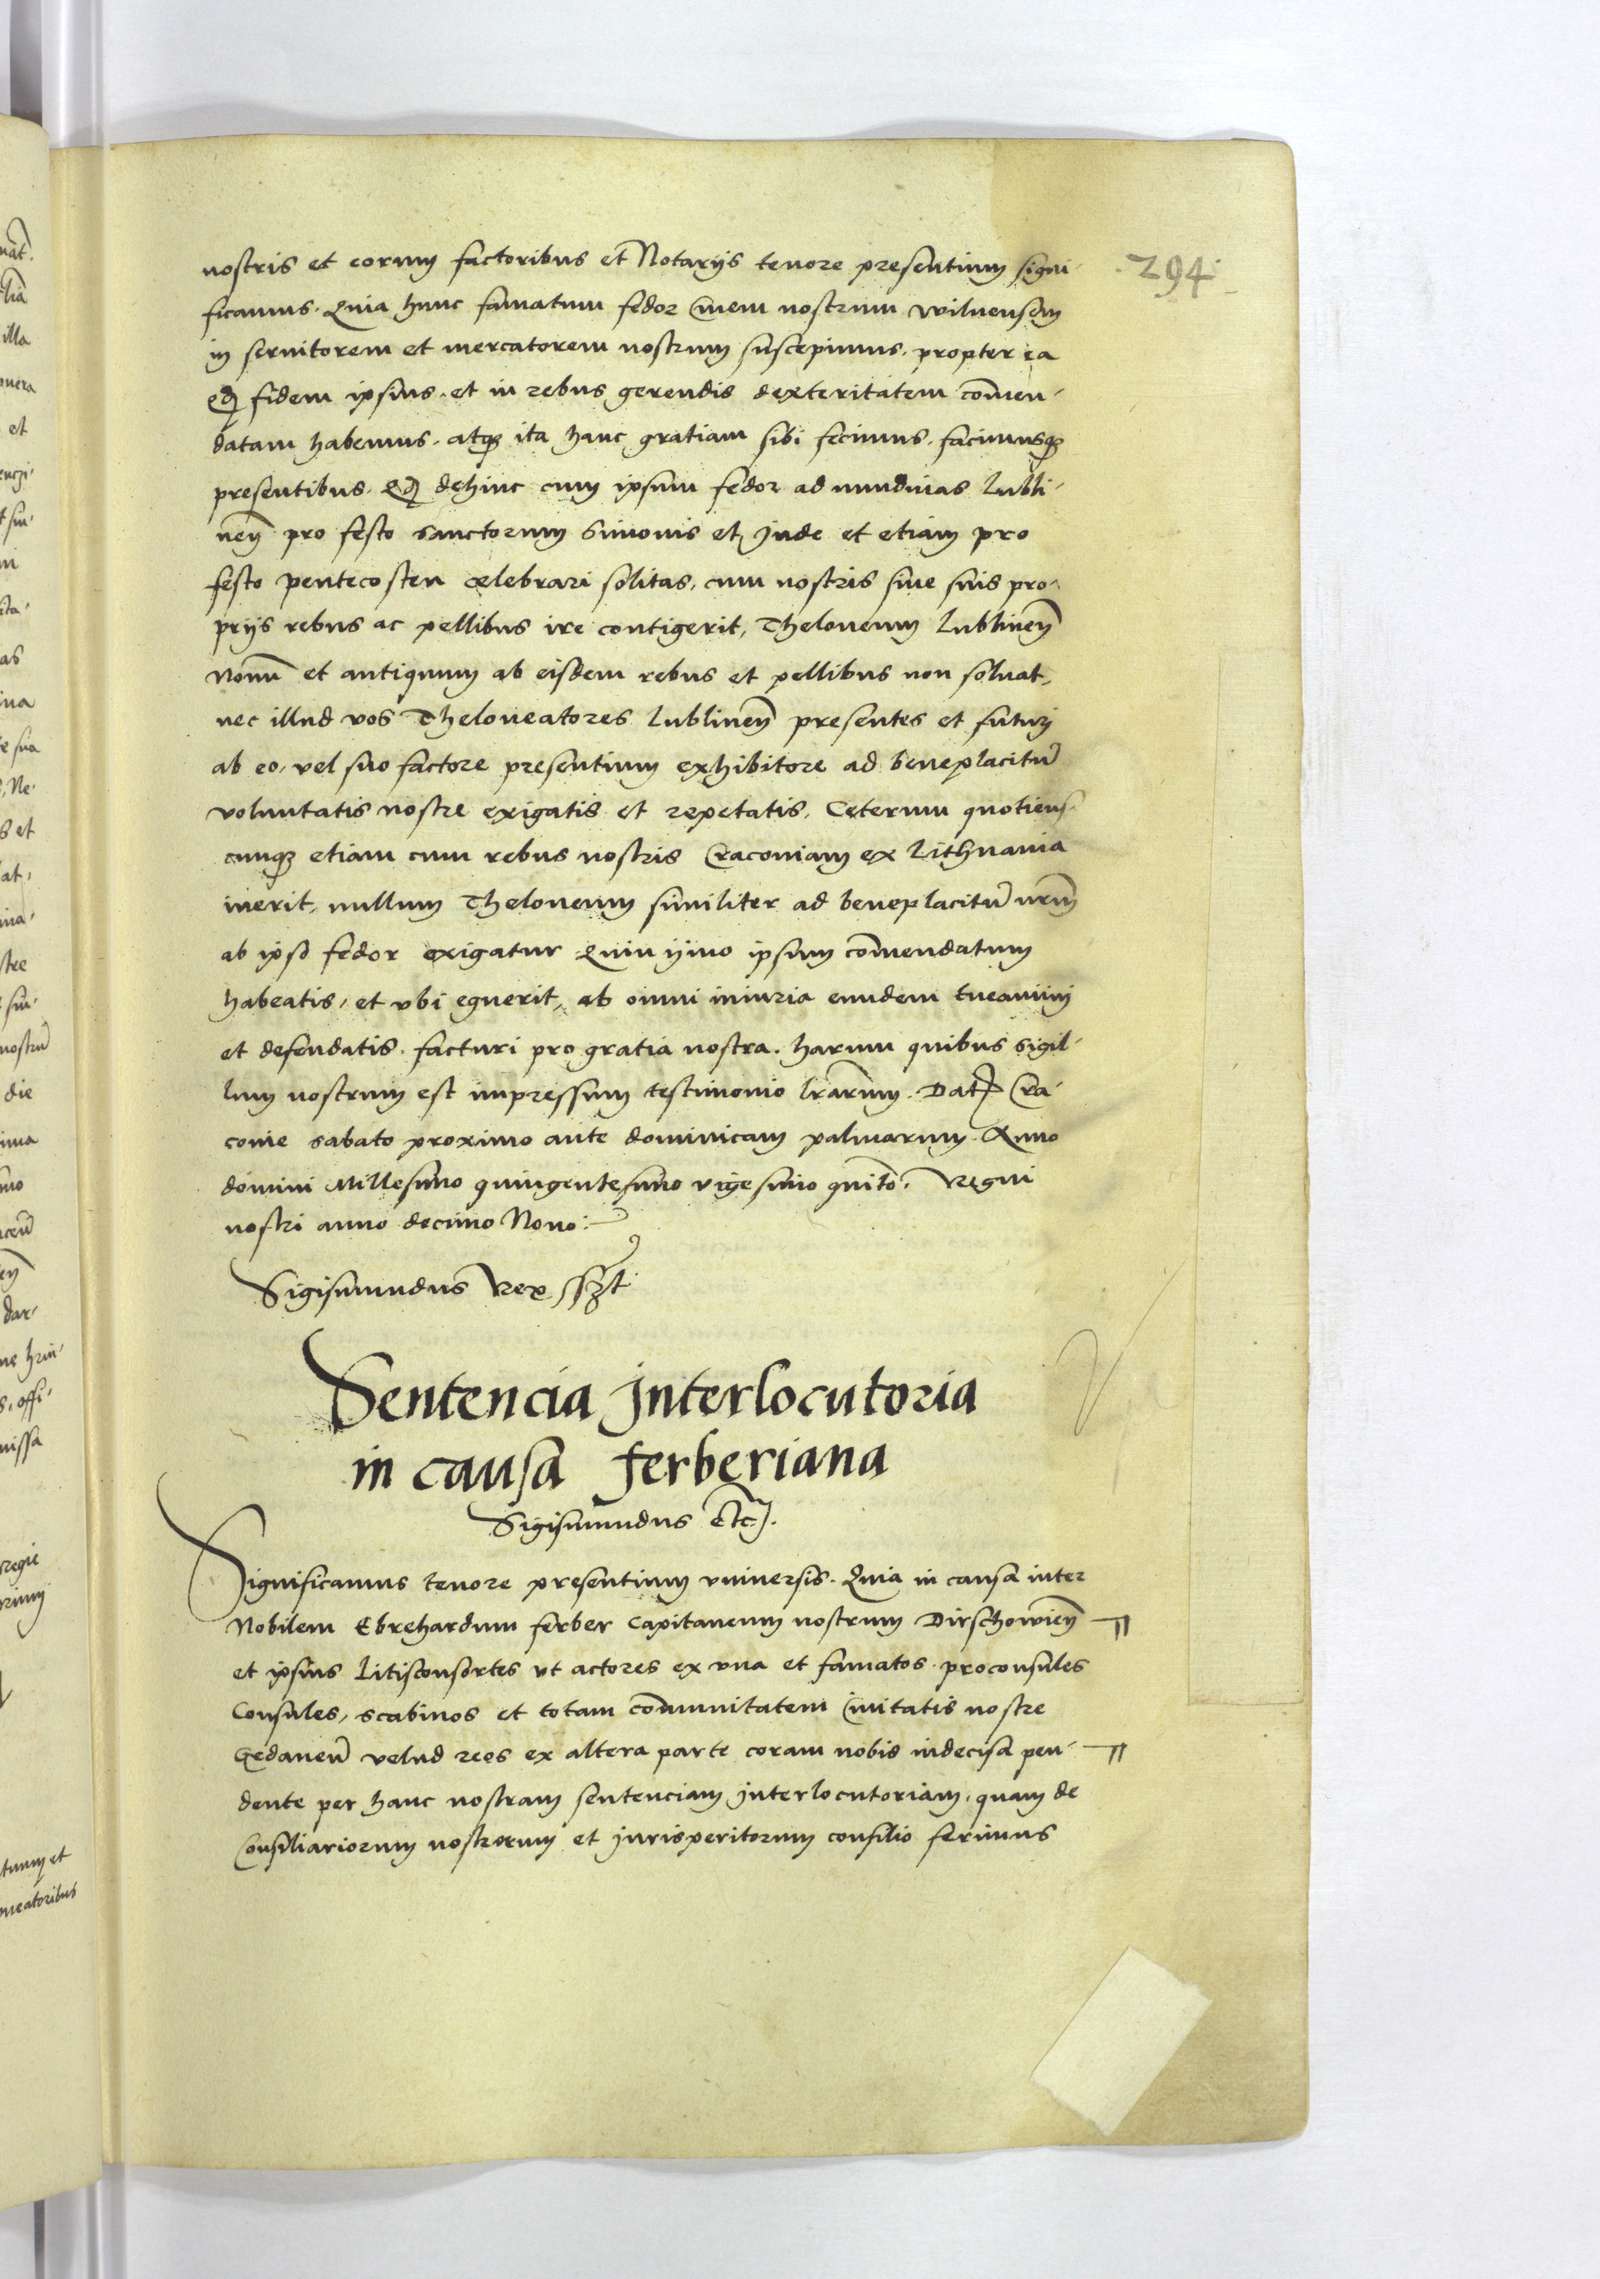 294
nostris et eorum factoribus et Notarijs tenore presentium signi-
ficamus. Quia hunc famatum fedor Ciuem nostrum wilnensem
in seruitorem et mercatorem nostrum suscepimus. propter ea
q fidem ipsius. et in rebus gerendis dexteritatem com̄en-
datam habemus. atq ita hanc gratiam sibi fecimus. facimusq
presentibus. q dehinc cum ipsum fedor ad nundinas Lubli-
neñ pro festo sanctorum Simonis et Jude et etiam pro
festo pentecosten celebrari solitas, cum nostris siue suis pro-
prijs rebus ac pellibus ire contigerit, Theloneum Lublineñ
Nouū et antiquum ab eisdem rebus et pellibus non soluat,
nec illud vos Theloneatores Lublineñ presentes et futuri
ab eo, vel suo factore presentium exhibitore ad beneplacitū
voluntatis nostre exigatis et repetatis, Ceterum quotiens-
cunq etiam cum rebus nostris Cracouiam ex Lithuania
inerit, nullum Theloneum similiter ad beneplacitū nr̄m
ab ipso fedor exigatur Quin ymo ipsum com̄endatum
habeatis, et vbi eguerit, ab omni iniuria eundem tueamini
et defendatis. facturi pro gratia nostra. harum quibus sigil-
lum nostrum est impressum testimonio lr̄arum. Dat Cra-
couie sabato proximo ante dominicam palmarum. Anno
domini Millesimo quingentesimo vigesimo quīto, Regni
nostri anno decimo Nono:
Sigismundus Rex sszt
Sentencia Interlocutoria
in causa ferberiana
Sigismundus etc.
Significamus tenore presentium vniuersis. Quia in causa inter
Nobilem Ebrehardum ferber Capitaneum nostrum Dirschowieñ
et ipsius Litisconsortes vt actores ex vna et famatos. proconsules
Consules, scabinos et totam com̄unitatem Ciuitatis nostre
Gedaneñ velud reos ex altera parte coram nobis indecisa pen-
dente per hanc nostram sentenciam Interlocutoriam, quam de
Consiliariorum nostrorum et Jurisperitorum consilio ferimus